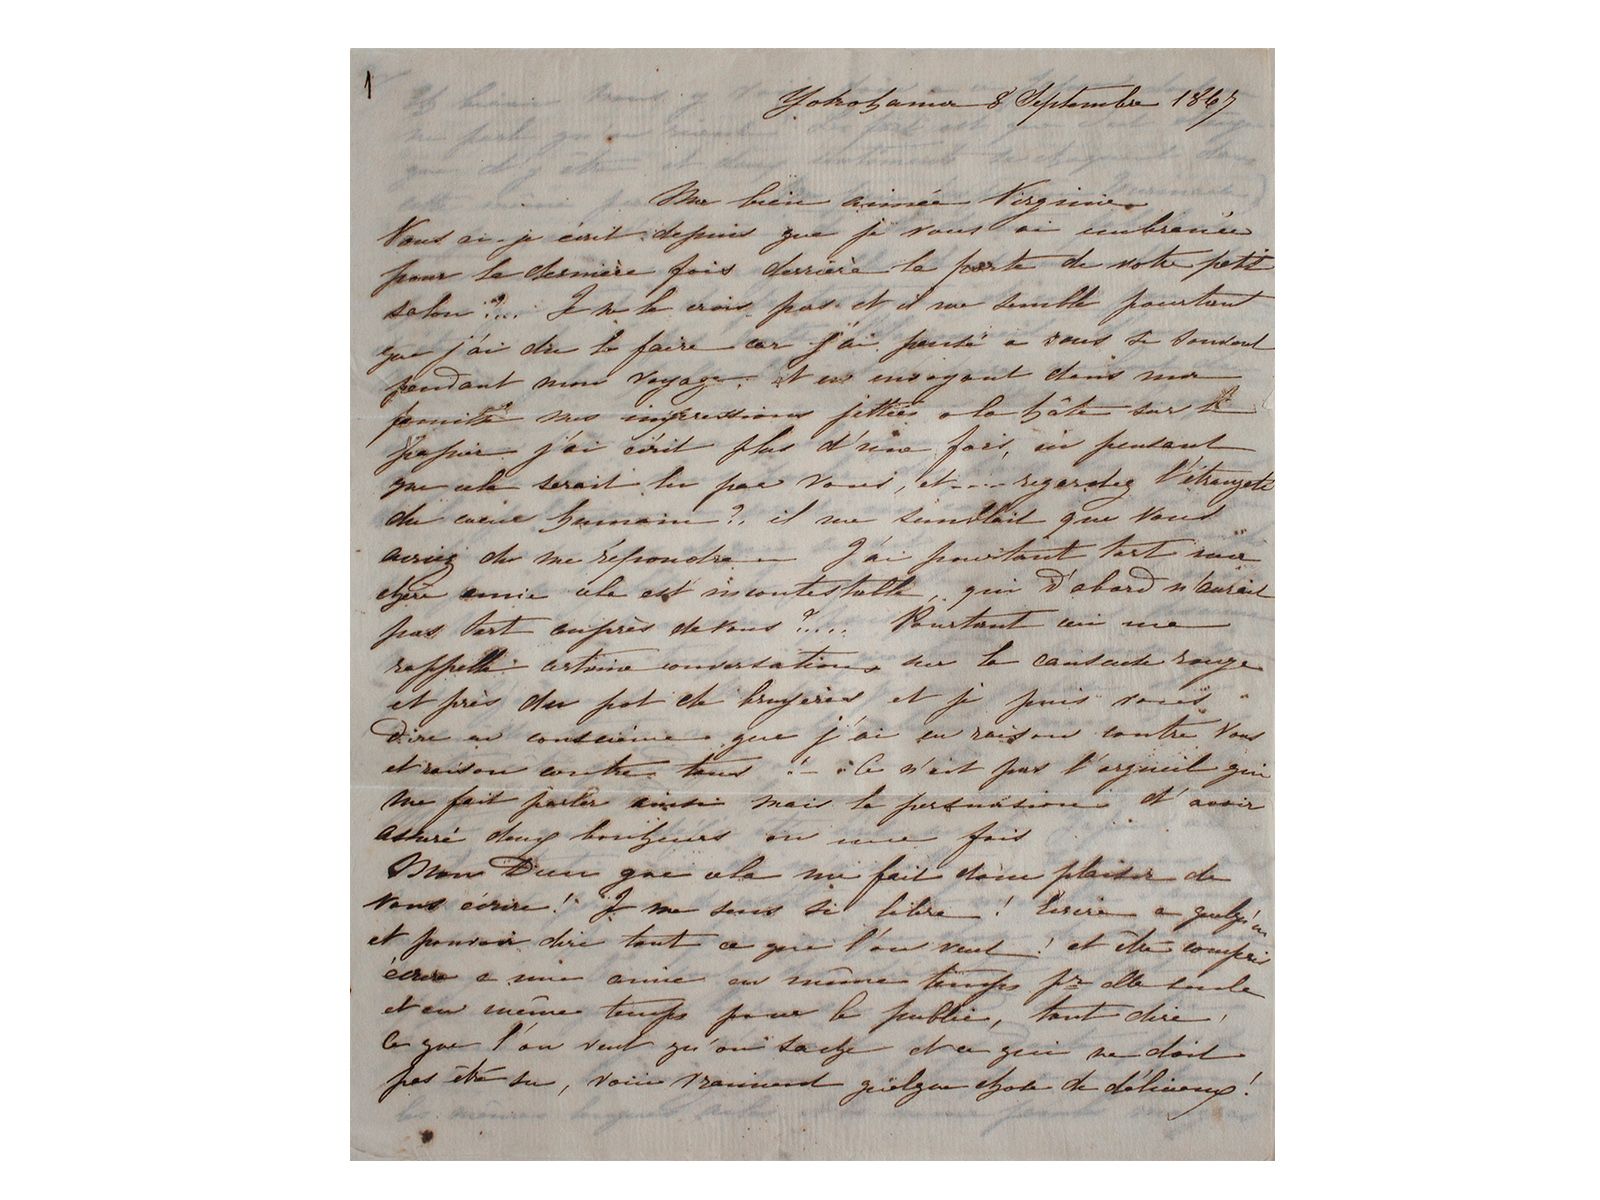 1
Yokohama 8 Septembre 1867
Ma bien aimée Virginie
Vous ai-je écrit depuis que je vous ai embrassée
pour la dernière fois derrière la porte de votre petit
salon?... Je ne le crois pas et il me semble pourtant
que j'ai du le faire car j'ai pensé a vous si souvent
pendant mon voyage. et en envoyant dans ma
famille mes impressions jettées a la hâte sur le
papier j'ai écrit plus d'une fois, en pensant
que cela serait lu par vous, et.... regardez l'étrangeté
du coeur humain?. il me semblait que vous
auriez du me répondre — J'ai pourtant tort ma
chère amie cela est incontestable, qui d'abord n'aurait
pas tort auprès de vous?.... Pourtant on me
rappelle certaine conversation sur la causeuse rouge
et près du pot de bruyères et je puis vous
dire en conscience que j'ai eu raison contre vous
et raison contre tous !— Ce n'est pas l'orgueil qui
me fait parler ainsi mais la persuasion d'avoir
assuré deux bonheurs en une fois
Mon Dieu que cela me fait donc plaisir de
vous écrire! Je me sens si libre! Ecrire a quelqu'un
et pouvoir dire tout ce que l'on veut! et être compris
écrire a une amie en même temps pr elle seule
et en même temps pour le public, tout dire!
Ce que l'on veut qu'on sache et ce qui ne doit
pas être su, voici vraiment quelque chose de délicieux!